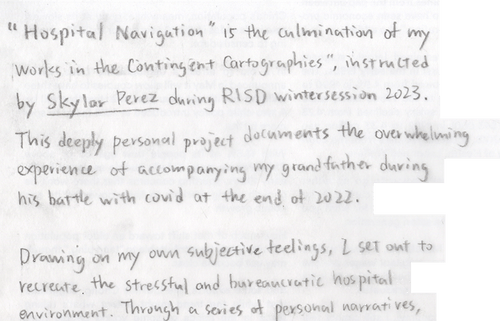 "Hospital Navigation" is the culmination of my
works in the Contingent Cartographies", instructed
by Skylar Perez during RISD wintersession 2023.
This deeply personal project documents the overwhelming
experience of accompanying my grandfather during
his battle with covid at the end of 2022.
Drawing on my own subjective feelings, I set out to
recreate the stressful and bureaucratic hospital
environment. Through a series of personal narratives,